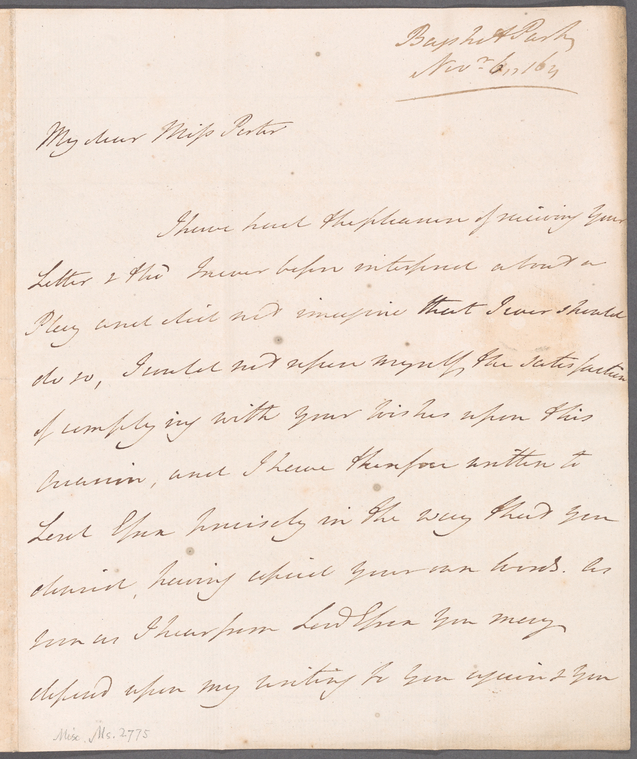 Bagshot Park
Novr 6, 16
My dear Miss Porter
I have had the pleasure of receiving Your
Letter & tho' I never before interfered about a
Play and did not imagine that I ever should
do so, I could not refuse myself the satisfaction
of complying with your wishes upon this
occasion, and I have therefore written to
Lord Essex precisely in the way that you
desired, having copied your own words. As
soon as I hear from Lord Essex You may
depend upon my writing to You again & You
Misc. Ms. 2775